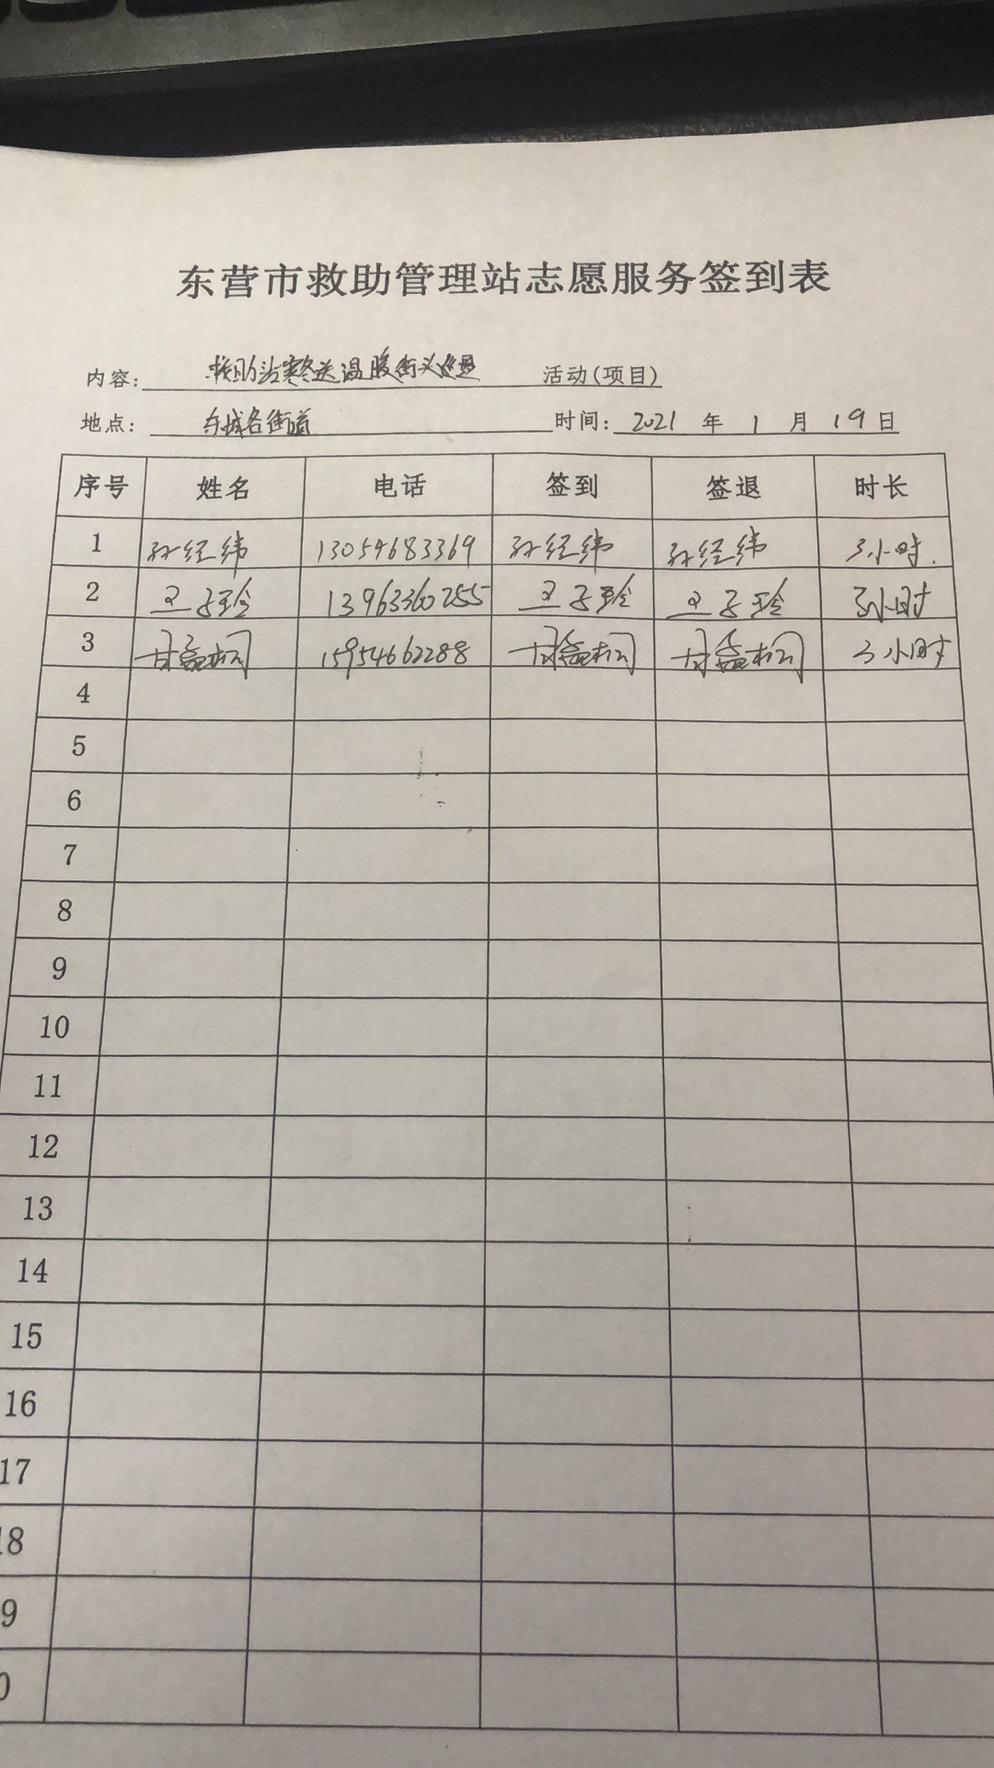 东营市救助管理站志愿服务签到表
内容: 救助站寒冬送温暖街头巡 活动(项目)
地点: 东城各街道 时间: 2021 年 1 月 19 日
序号 姓名 电话 签到 签退 时长
1 孙经纬 13054683369 孙经纬 孙经纬 3小时.
2 王子玲 13963360255 王子玲 王子玲 3小时
3 甘益 15954662288 甘益 甘益 3小时
4
5
6
7
8
9
10
11
12
13
14
15
16
17
18
9
0